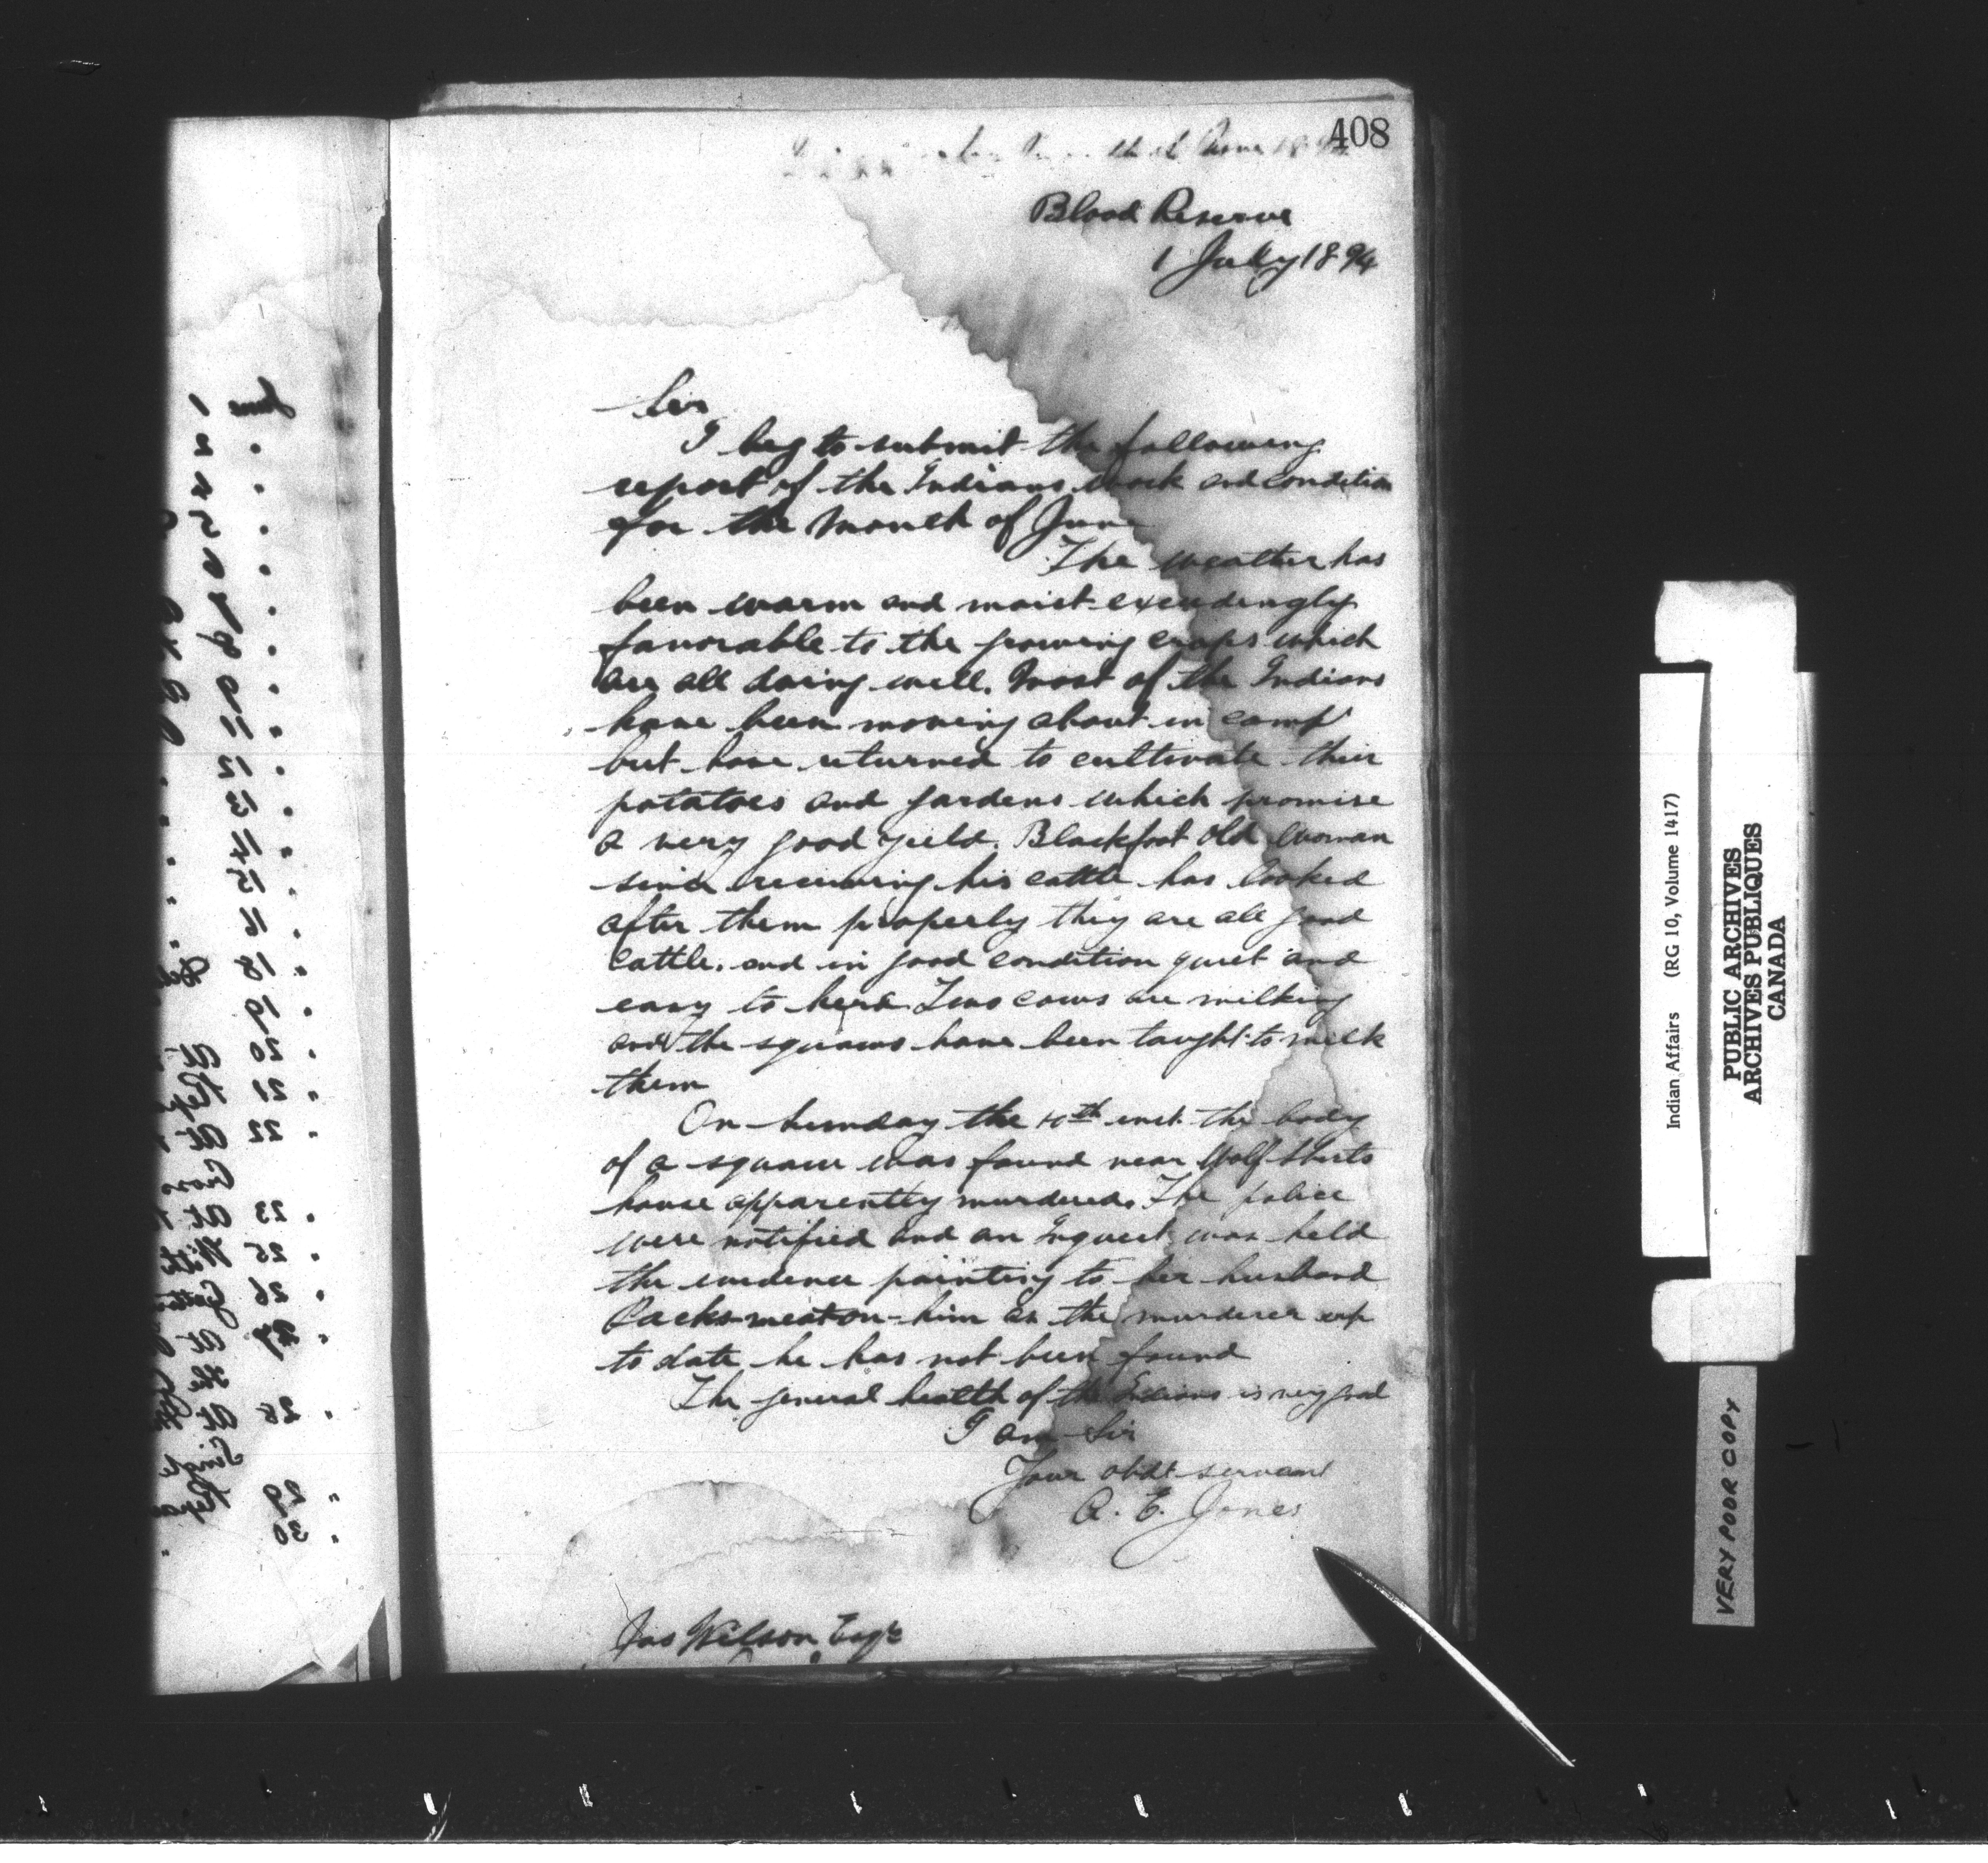 408
Blood Reserve
1 July 1894
Sir
I beg to submit the following
report of the Indians work and condition
for the month of June
The weather has
been warm and moist exceedingly
favorable to the growing crops which
are all doing well. Most of the Indians
have been moving about in camp
but have returned to cultivate their
potatoes and gardens which promise
a very good yield. Blackfoot Old Woman
since receiving his cattle has looked
after them properly they are all good
cattle. and in good condition quiet and
easy to herd Two cows are milking
and the squaws have been taught to milk
them
On Sunday the 10th inst. the body
of a squaw was found near Wolf Shirts
house apparently murdered. The police
were notified and an Inquest was held
the evidence pointing to her husband
Packs-meat-on-him as the murderer up
to date he has not been found
The general health of the Indians is very good
I am Sir
Your obdt servant
A. E. Jones
Jas Wilson Esqre
June
1
2
4
5
9
11
12
13
14
15
16
18
19
20
21
22
23
25
26
27
28
29
30
Indian Affairs (RG 10, Volume 1417)
PUBLIC ARCHIVES
ARCHIVES PUBLIQUES
CANADA
VERY POOR COPY